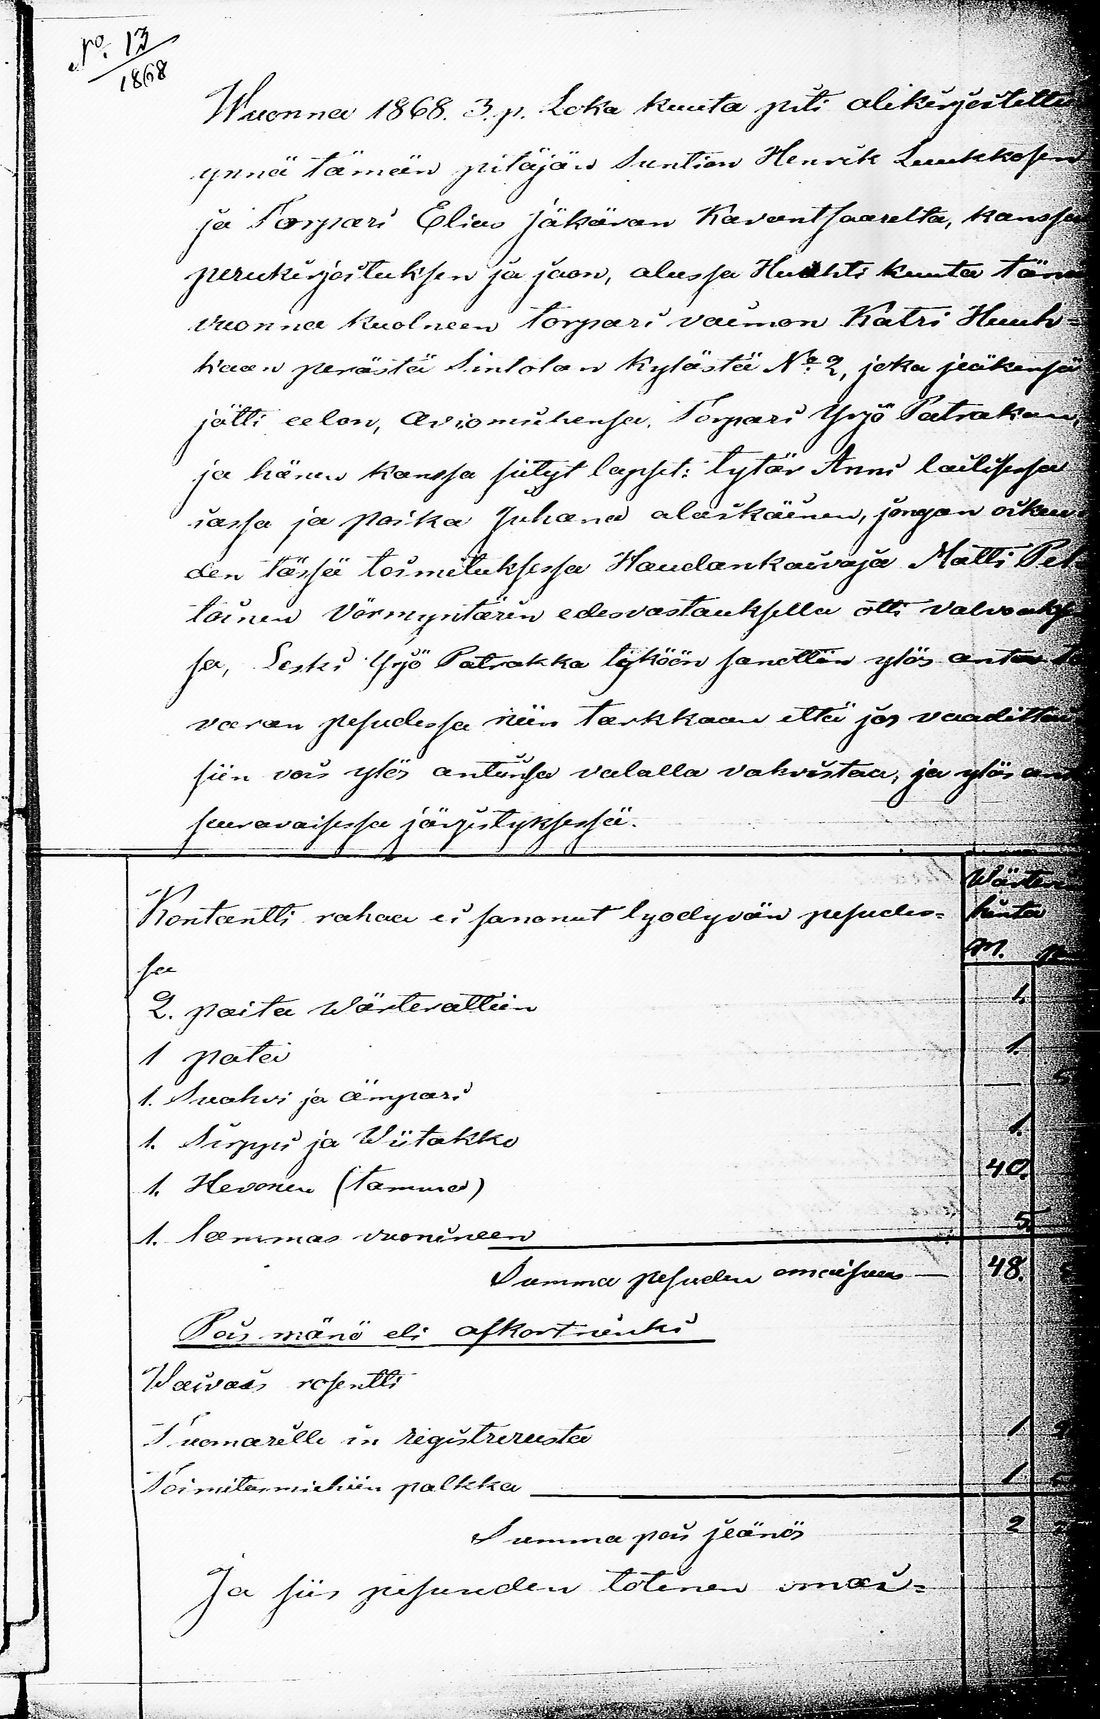 No. 13
1868
Wuonna 1868. 3. p. Loka kuuta piti alikirjoitettu
ynnä tämän pitäjän Suntion Henrik Luukkosen
ja Torpari Elias Jäkävan Kavantsaarelta, kanssa
perukirjoituksen ja jaon, alussa Huhti kuuta tänä
vuonna kuolneen torpari vaimon Katri Huuh=
kaan perästä Sintolan kylästä No. 2, joka jääkensä
jätti eelon, aviomiehensa, Torpari Yrjö Patrakan,
ja hänen kanssa siityt lapset: tytär Anni laillisessa
iassa ja poika Juhana alaikäinen, jongan oikeu=
den tässä toimituksessa Haudankaivaja Matti Pel=
toinen Vörmyntärin edesvastauksella otti
sa, Leski Yrjö Patrakka lyköön sanottin ylös
varan pesudessa niin tarkkaan että jos vaadittai
siin vois ylös antunsa valalla vakvistaa, ja ylös
seuravaisessa järjistyksessä.
Wärteri
hinta
Kontantti rahaa ei sanonut lyodyvän pesudes=
M. P.
sa
2. paita Wärterattiin 1.
1 pata 1.
1. Suahvi ja ämpari
1. Sirppi ja Wiitakko 1.
1. Hevonen (tamma) 40.
1. lammas vuonineen 5.
Summa pesuden omaisuus 48.
Pois mänö eli afkortninki
Waivais rosentti
Tuomarille in registrerusta 1
Toimitusmiehiin palkka 1
Summa pois jäänös 2
Ja siis pesuuden totinen omai=